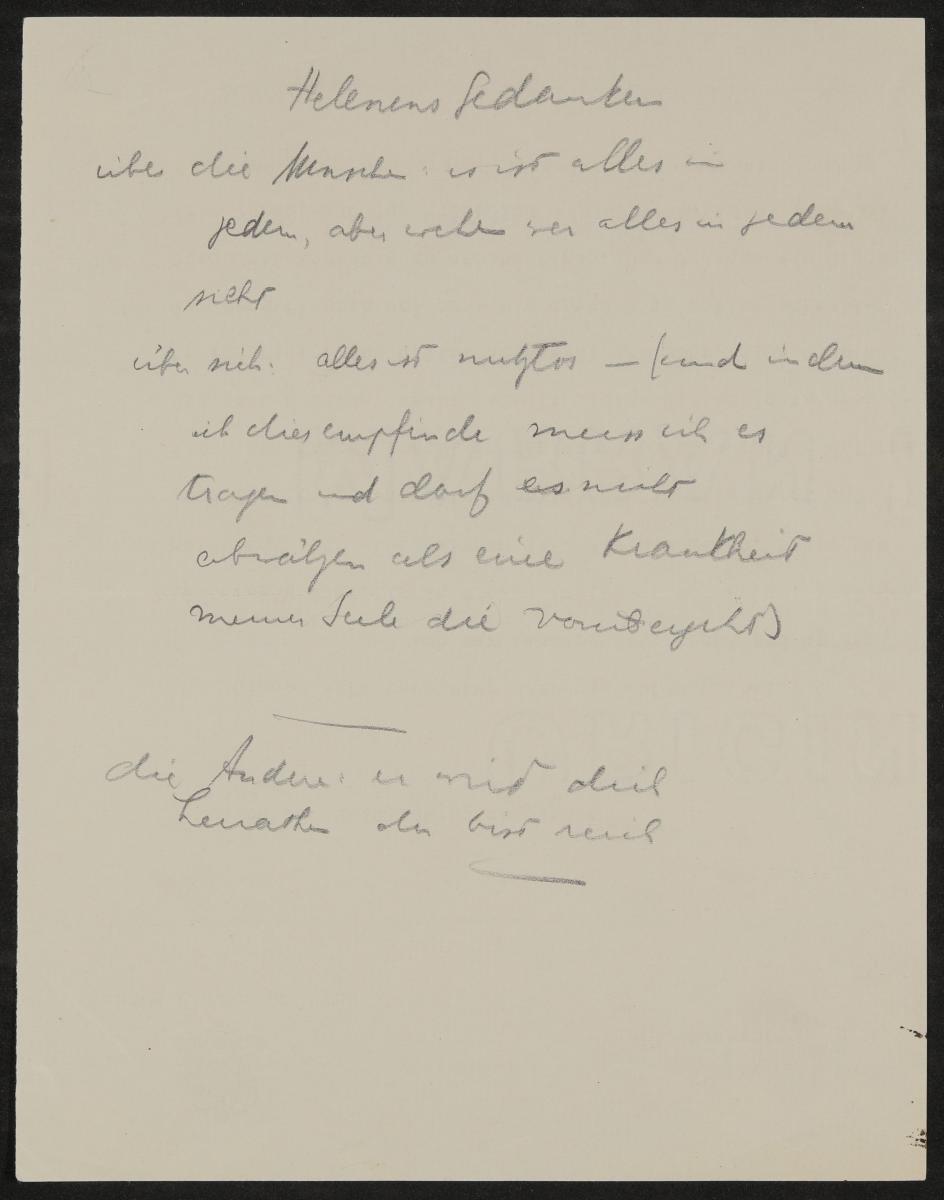 Helenens Gedanken
über die Menschen: es ist alles in
jedem, aber wehe wer alles in jedem
sieht
über sich: alles ist nutzlos – (und indem
ich dies empfinde muss ich es
tragen und darf es nicht
abwälzen als eine Krankheit
meiner Seele die vorübergeht)
die Andere: er wird dich
heirathen du bist reich